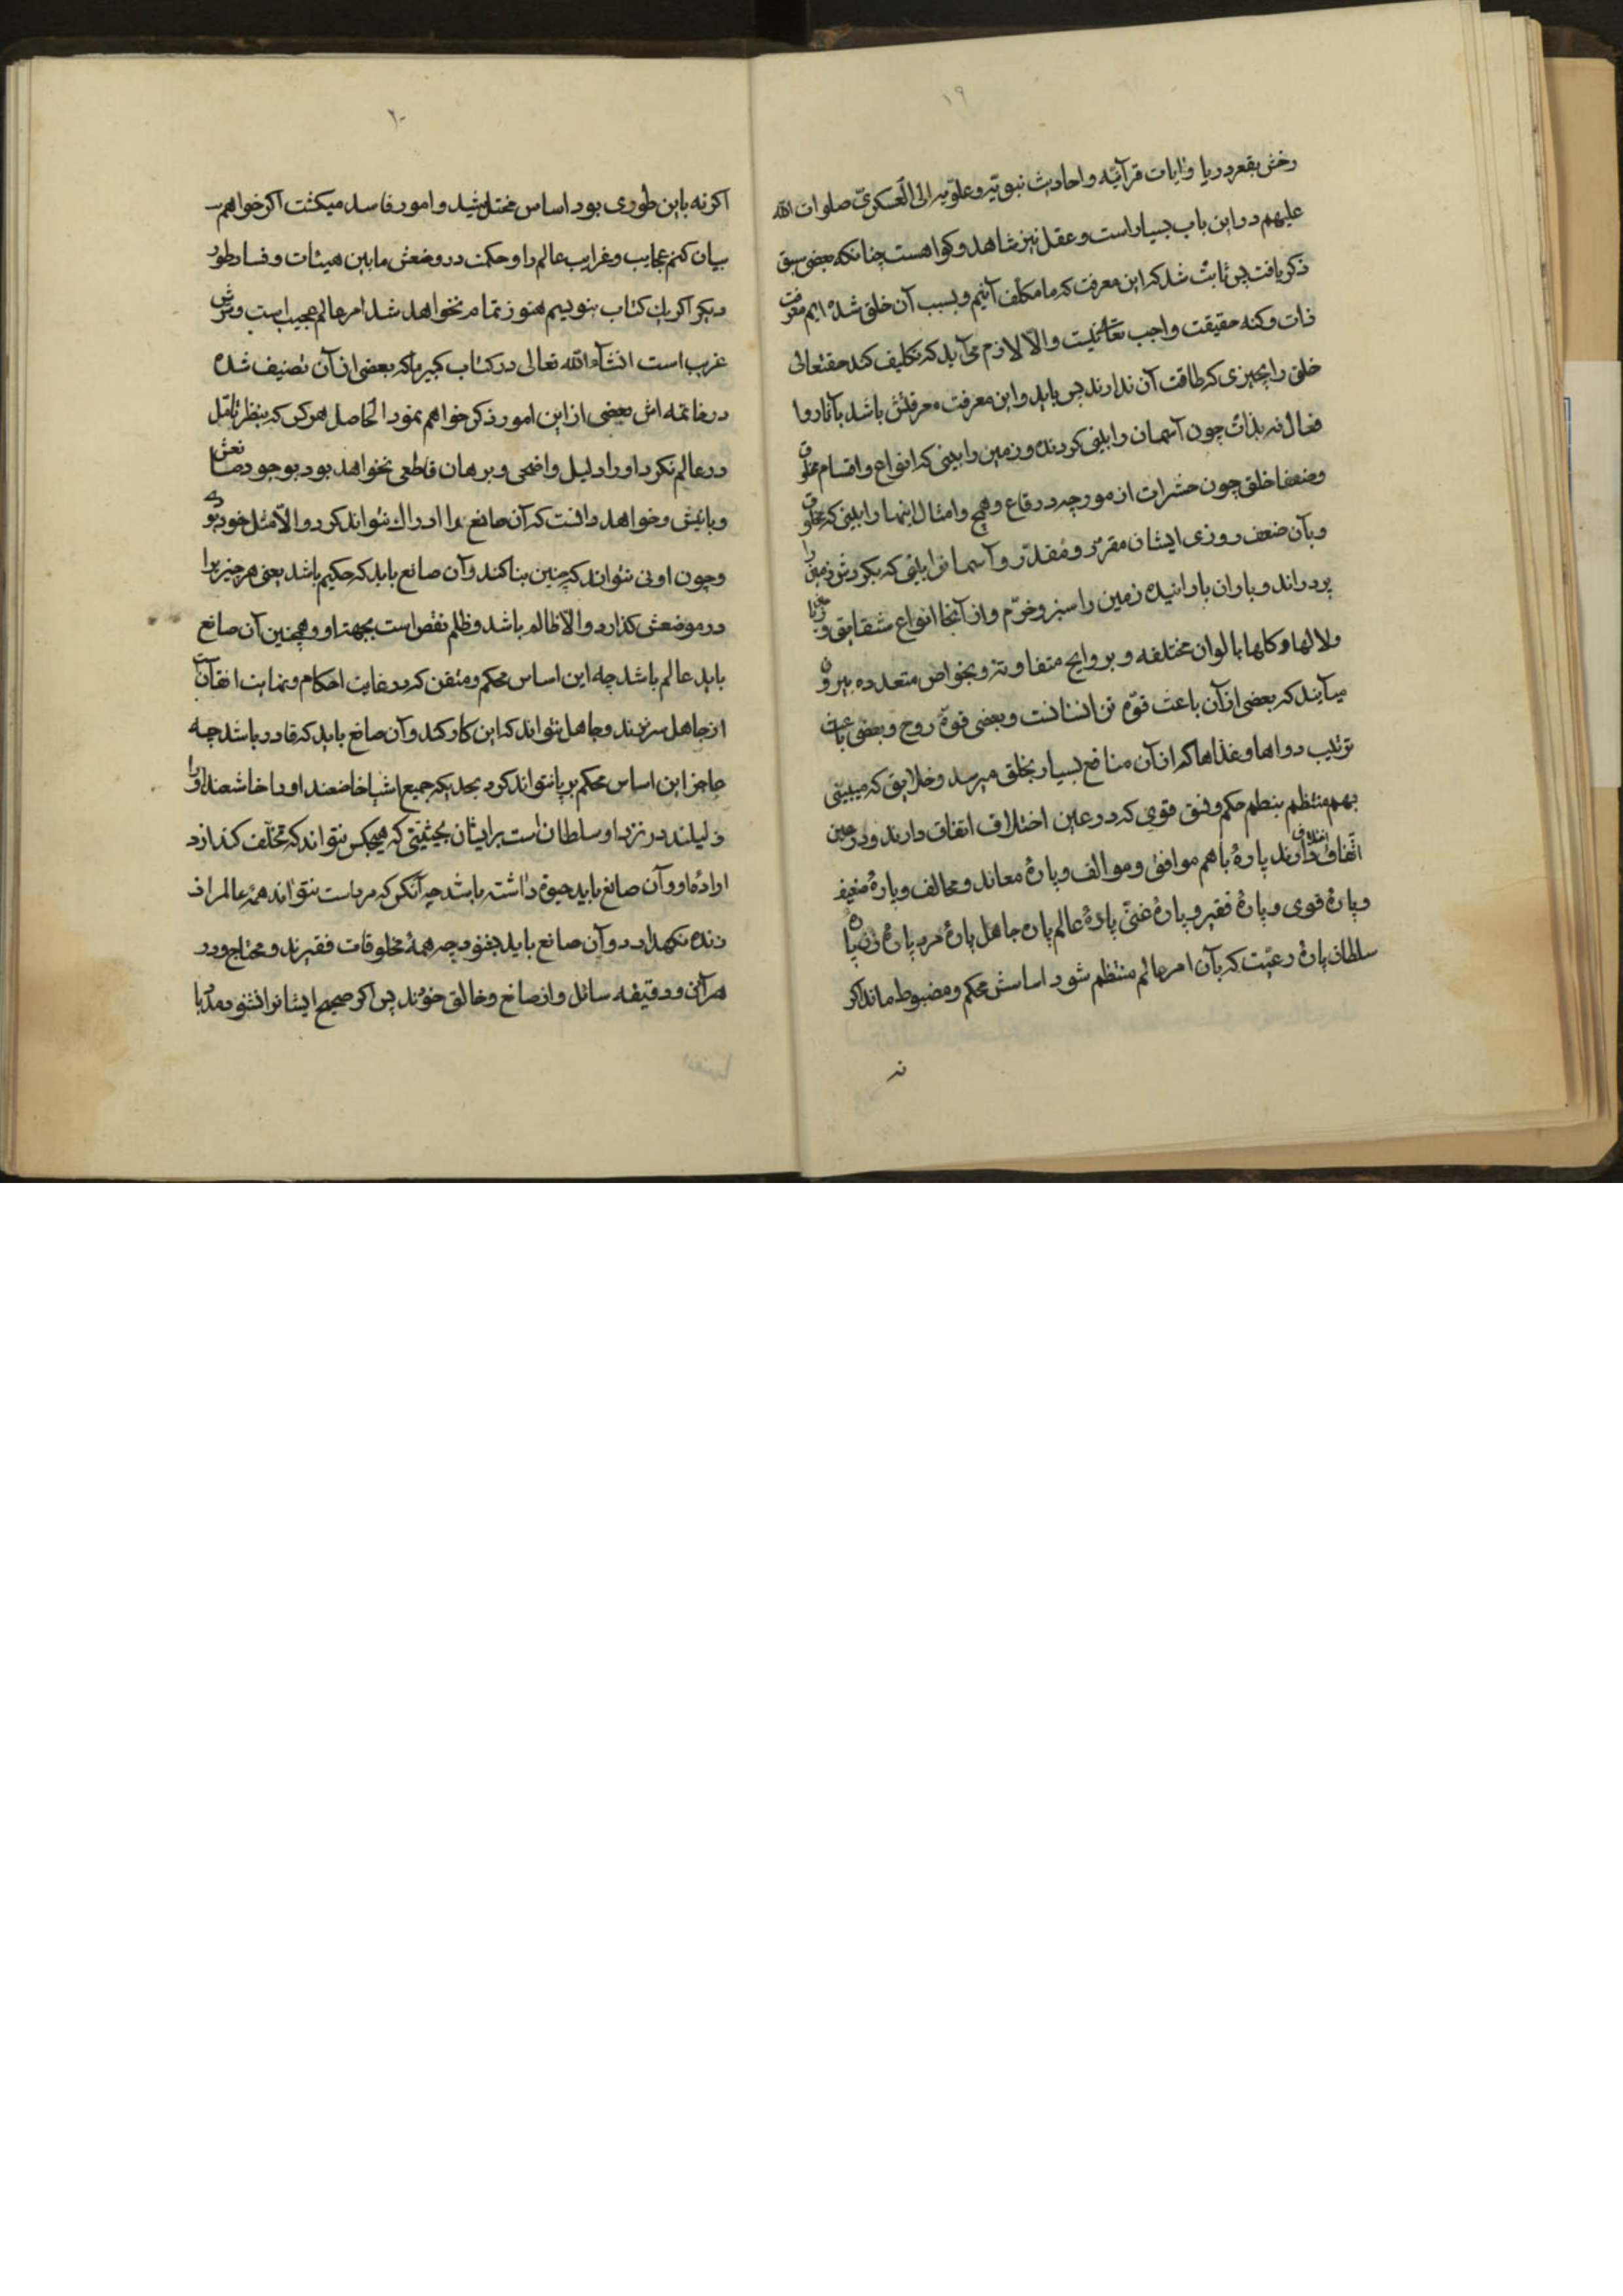 ۱۹
رخش بقعر دریا و ایات قرآنیه و احادیث نبویّه و علویّه الی العسکریّ صلوات الله
علیهم در این باب بسیار است و عقل نیز شاهد و کواهست چنانکه بعضی سبق
ذکر یافت پس ثابت شد که این معرفت که ما مکلف آنیم و بسبب آن خلق شده ایم معرفت
ذات و کنه حقیقت واجب تعالی نیست و الّا لازم می آید که تکلیف کند حقتعالی
خلق را بچیزی که طاقت آن ندارند پس باید و این معرفت معرفتش باشد بآثار و
فعال نه بذات چون آسمان را بینی کردنده و زمین را بینی که انواع و اقسام مخلوق
و ضعفا خلق چون حشرات از مورچه در قاع و همج و امثال اینها را بینی که مخلوق
و بآن ضعف روزی ایشان مقرّر و مقدّر و آسمانرا بینی که بکردش زمین را
پروراند و باران بارانیده زمین را سبز و خرّم و از آنجا انواع شقایق و
و لالها و کلها بالوان مختلفه و بروایح متفاوته و بخواص متعدده بیرون
میآیند که بعضی از آن باعث قوّه تن انسانست و بعضی قوهٔ روح و بعضی باعث
ترتیب دواها و غذاها که از آن منافع بسیار بخلق میرسد و خلایق که میبینی
بهم منتظم بنظم حکم و نسق قوی که در عین اختلاف اتفاق دارند و در عین
اتّفاق اختلاف دارند پارهٔ باهم موافق و موالف و پارهٔ معاند و مخالف و پارهٔ ضعیف
و پارهٔ قوی و پارهٔ فقیر و پارهٔ غنیّ پارهٔ عالم پاره جاهل پارهٔ مرد پارهٔ زن پاره
سلطان پارهٔ رعیّت که بآن امر عالم منتظم شود اساسش محکم و مضبوط ماند اکر
نه
۲۰
اکر نه باین طوری بود اساس مختل میشد و امور فاسد میکشت اکر خواهم
بیان کنم عجایب و غرایب عالم را و حکمت در وضعش مابین هیئات و فساد طور
دیکر اکر یک کتاب بنویسم هنوز تمام نخواهد شد امر عالم عجیب است و
غریب است انشآء الله تعالی در کتاب کبیر ما که بعضی از آن تصنیف شده
در خاتمه اش بعضی از این امور ذکر خواهم نمود الحاصل هر کس که بنظر تامّل
در عالم نکرد او را دلیل واضحی و برهان قاطعی نخواهد بود بوجود صانعش
و بانیش و خواهد دانست که آن صانع را ادراک نتواند کرد و الّا مثل خود بود
و چون اوئی نتواند که چنین بنا کند و آن صانع باید که حکیم باشد یعنی هر چیز را
در موضعش کذارد و الّا ظالم باشد و ظلم نقص است بجهة او و همچنین آن صانع
باید عالم باشد چه این اساس محکم و متقن که در غایت احکام و نهایت اتقانست
از جاهل سر نزند و جاهل نتواند که این کار کند و آن صانع باید که قادر باشد چه
عاجز این اساس محکم بر پا نتواند کرد بحدیکه جمیع اشیا خاضعند او را خاشعند او را
ذلیلند در نزد او سلطان است بر ایشان بحیثیّتی که هیچکس نتواند که تخلّف کند از
ارادهٔ او و آن صانع باید حیوة داشته باشد چه آنکس که مرده است نتواند همهٔ عالم را
زنده نکهدارد و آن صانع باید بشنود چه همهٔ مخلوقات فقیرند و محتاج و در
هر آنی و دقیقه سائل و از صانع و خالق خودند پس اکر صحیح ایشانرا نشنود